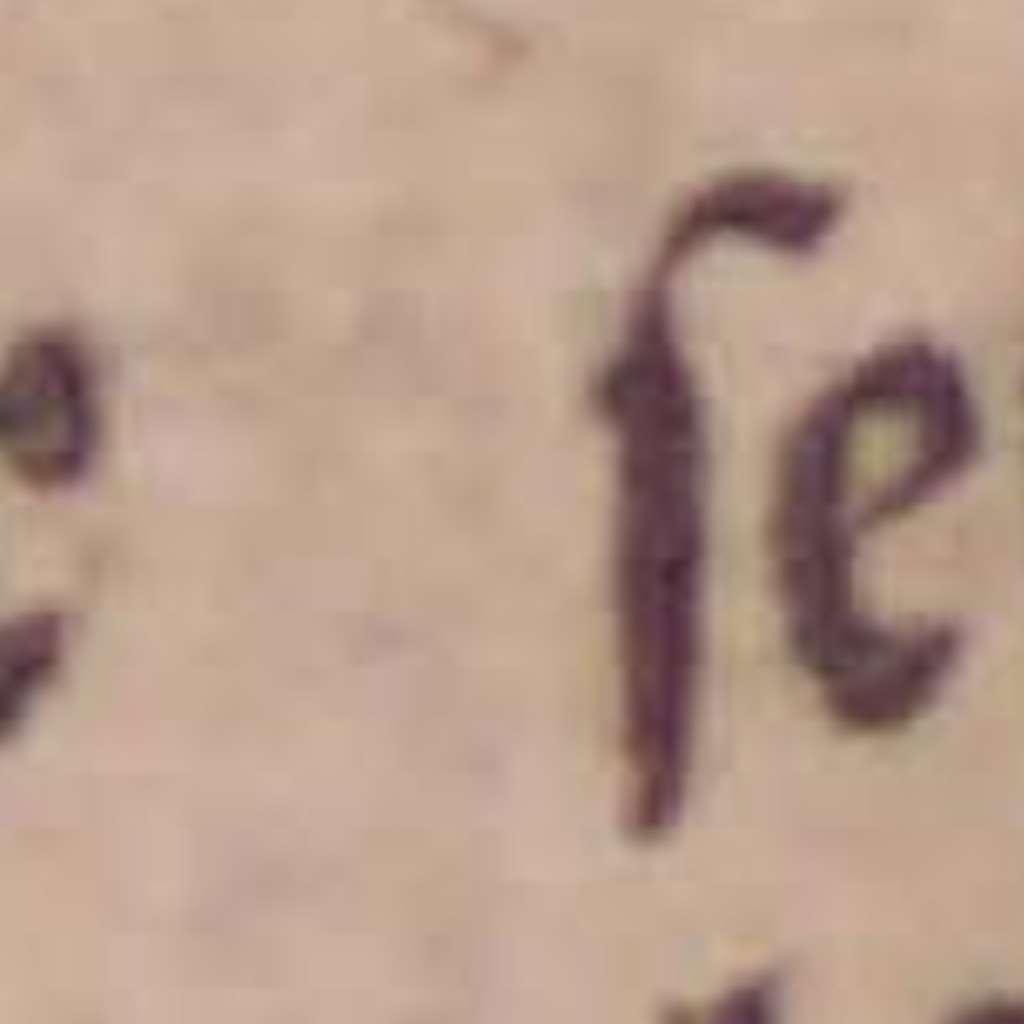 e ſe